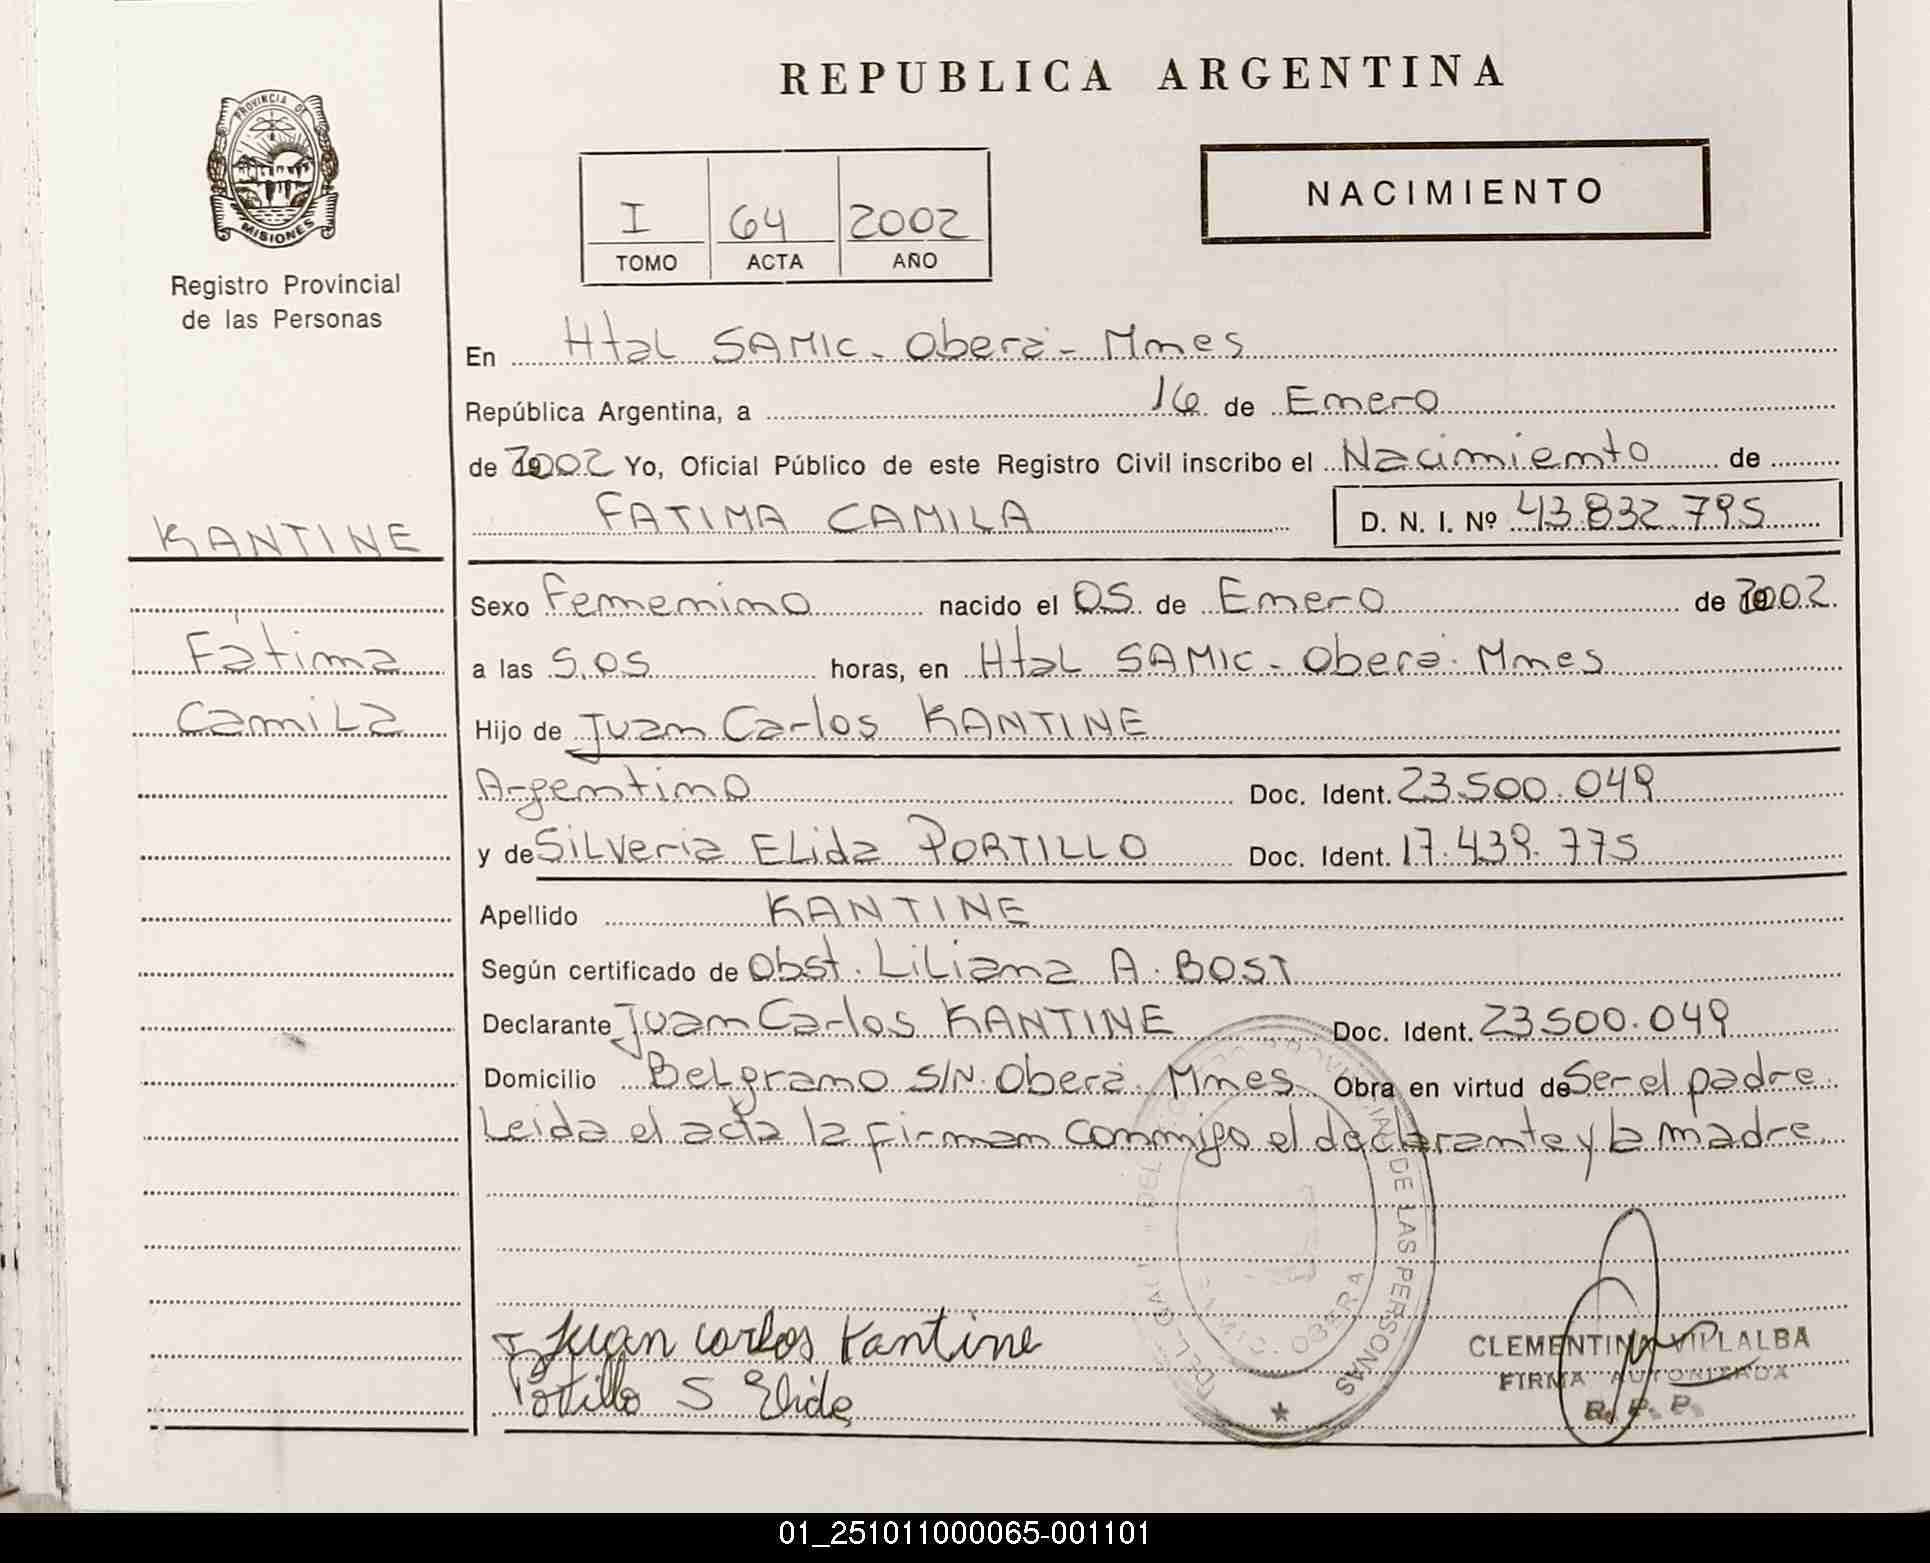 REPUBLICA ARGENTINA
PROVINCIA DE
MISIONES
Registro Provincial
de las Personas
I 64 2002
TOMO ACTA AÑO
NACIMIENTO
En Htal SAMIC - Oberá - Mnes
República Argentina, a 16 de Enero
de 2002 Yo, Oficial Público de este Registro Civil inscribo el Nacimiento de
FATIMA CAMILA D. N. I. Nº 43.832.795
KANTINE
Fátima
Camila
Sexo Femenino nacido el 05 de Enero de 2002
a las 5.05 horas, en Htal SAMIC - Oberá. Mnes
Hijo de Juan Carlos KANTINE
Argentino Doc. Ident. 23.500.049
y de Silveria Elida PORTILLO Doc. Ident. 17.439.775
Apellido KANTINE
Según certificado de Obst. Liliana A. BOST
Declarante Juan Carlos KANTINE Doc. Ident. 23.500.049
Domicilio Belgrano S/N. Oberá. Mnes Obra en virtud de Ser el padre
Leida el acta la firman conmigo el declarante y la madre
DE LAS PERSONAS
OBERA
Juan carlos Kantine
Portillo S Elida
CLEMENTINA VILLALBA
FIRMA AUTORIZADA
R. P. P.
01_251011000065-001101